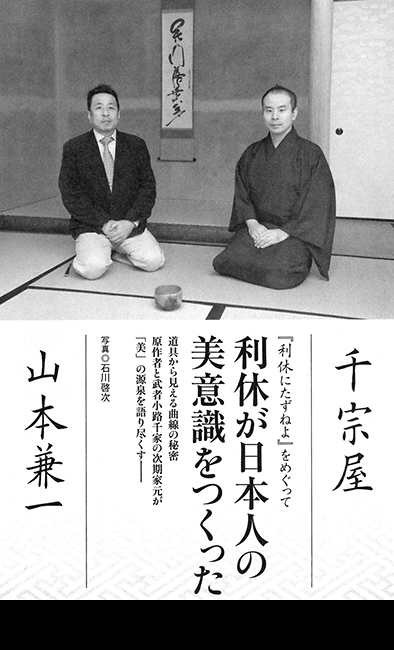 千宗屋
『利休にたずねよ』をめぐって
利休が日本人の
美意識をつくった
道具から見える曲線の秘密
原作者と武者小路千家の次期家元が
「美」の源泉を語り尽くす――
写真◎石川啓次
山本兼一